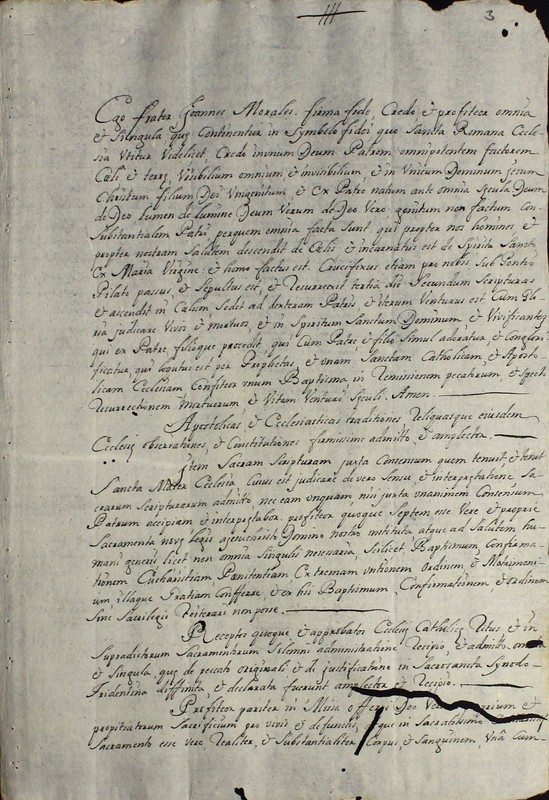 III
3
Ego frater Joannes Morales. firma fide, Credo, & profiteor omnia
& singula quę Continentur in Symbolo fidei quo Sancta Romana Eccle-
sia Vtitur Videlicet, Credo invnum Deum Patrem omnipotentem factorem
Cœli & terrę, Visibilium omnium, & invisibilium, & in Vnicum Dominum Jesum
Christum filium Dei Vnigenitum, & Ex Patre natum ante omnia Sęcula Deum
de Deo Lumen de lumine Deum Verum de Deo Vero: genitum non factum Con-
Substantialem Patri perquem omnia facta Sunt qui propter nos homines, &
propter nostram Salutem descendit de Cœlis & incarnatus est de Spiritu Sancto
Ex Maria Virgine: & homo factus est. Crucifixus etiam pro nobis Sub Pontio
Pilato passus, & Sepultus est, & Resurrexit tertia die Secundum Scripturas
& ascendit in Cœlum Sedet ad dexteram Patris, & iterum Venturus est Cum Glo-
ria judicare Vivos & mortuos, & in Spiritum Sanctum Dominum, & Vivificantem
qui ex Patre, filioque procedit, qui Cum Patre & filio Simul adoratur, & Conglori-
ficatur, qui loqutus est per Prophetas, & vnam Sanctam Catholicam, & Aposto-
licam Ecclesiam Confiteor vnum Baptisma in Remissionem pecatorum, & Specto
Resurrectionem Mortuorum, & Vitam Venturi Sęculi. Amen.
Apostolicas, & Ecclesiasticas traditiones, Reliquasque eiusdem
Ecclesię observationes, & Constitutiones firmissime admitto, & amplector.
Item Sacram Scripturam juxta Consensum quem tenuit, & tenet
Sancta Mater Ecclesia, Cuius est judicare de vero Sensu, & interpretatione Sa-
crarum Scripturarum admitto, nec eam vnquam nisi juxta vnanimem Consensum
Patrum accipiam & interpretabor. profiteor quoque Septem esse Vere & proprie
Sacramenta novę Legis a Jesuchristo Domino nostro instituta atque ad Salutem hu-
mani generis licet non omnia Singulis necessaria, Scilicet Baptismum, Confirma-
tionem Eucharistiam Pœnitentiam Extremam vntionem Ordinem, & Matrimoni-
um illaque Gratiam Confferre, & ex his Baptismum, Confirmationem, & ordinem
Sine Sacrilegio Reiterari non posse.
Receptos quoque, & approbatos Ecclesię Catholicę Ritus, & in
Supradictorum Sacramentorum Solemni administratione Recipio, & admitto, omnia
& Singula, quę de peccato originali, & de justificatione in Sacrosancta Synodo
Tridentina diffinita, & declarata fuerunt amplector & Recipio.
Profiteor pariter in Missa offerri Deo &
propitiatorium Sacrificium pro vivis & defunctis, que in Sacratissimo
Sacramento esse vere Realiter, & Substantialiter Corpus, & Sanguinem, Vnâ Cum-